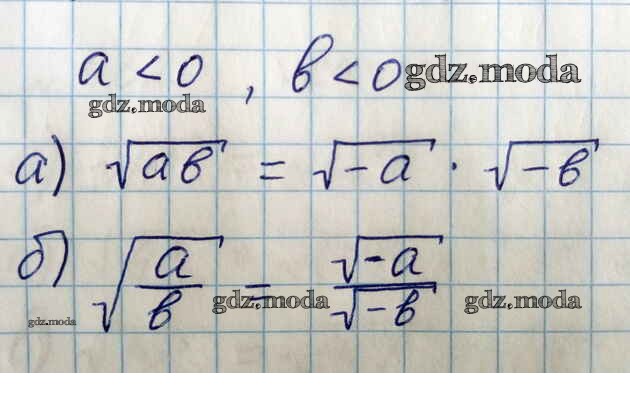 a < 0 , b < 0 gdz.moda
gdz.moda
а) √ab = √-a · √-b
б) √a/b = √-a/√-b
gdz.moda gdz.moda gdz.moda